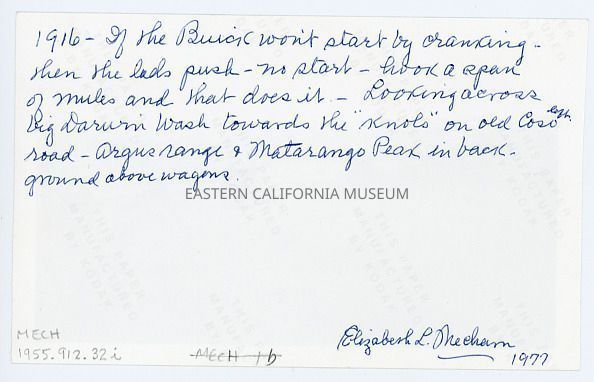 1916 - If the Buick won't start by cranking -
then the lads push - no start - hook a span
of mules and that does it. - Looking across
big Darwin Wash towards the "Knobs" on old Coso
road - Argus range & Matarango Peak in back-
ground above wagons.
EASTERN CALIFORNIA MUSEUM
THIS PAPER
MANUFACTURED
BY KODAK
MECH
1955.912.32i
MECH 1b
Elizabeth L. Mecham
1977